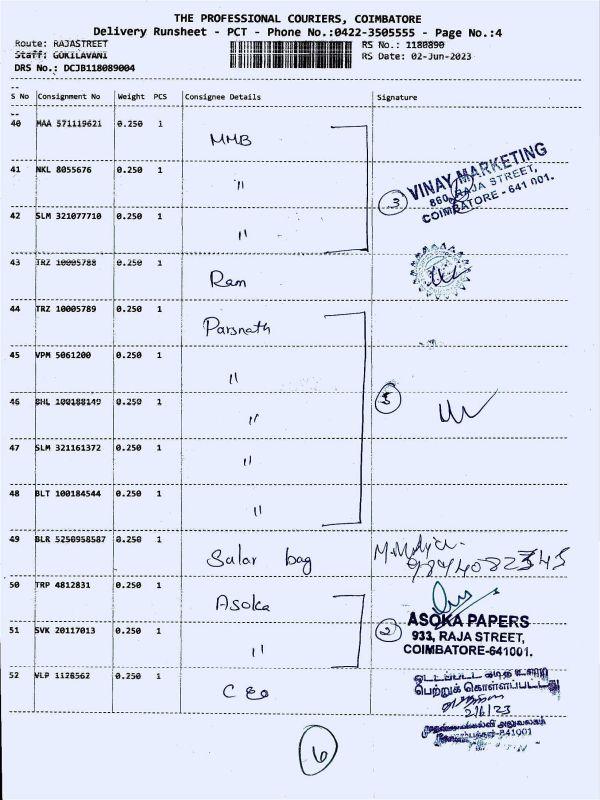 THE PROFESSIONAL COURIERS, COIMBATORE
Delivery Runsheet - PCT - Phone No.:0422-3505555 - Page No.:4
Route: RAJASTREET
RS No.: 1180890
Staff: GOKILAVANI
RS Date: 02-Jun-2023
DRS No.: DCJB118089004
S No Consignment No Weight PCS Consignee Details Signature
40 MAA 571119621 0.250 1 MMB
41 NKL 8055676 0.250 1 "
3 VINAY MARKETING
860, RAJA STREET,
COIMBATORE - 641 001.
42 SLM 321077710 0.250 1 "
43 TRZ 10005788 0.250 1 Ram
44 TRZ 10005789 0.250 1 Parsnath
45 VPM 5061200 0.250 1 "
46 BHL 100188149 0.250 1 " 5
47 SLM 321161372 0.250 1 "
48 BLT 100184544 0.250 1 "
49 BLR 5250958587 0.250 1 Salar bag
50 TRP 4812831 0.250 1 Asoka
51 SVK 20117013 0.250 1 " 2
ASOKA PAPERS
933, RAJA STREET,
COIMBATORE-641001.
52 VLP 1128562 0.250 1 CEO
பெற்றுக் கொள்ளப்பட்டது
2/6/23
6